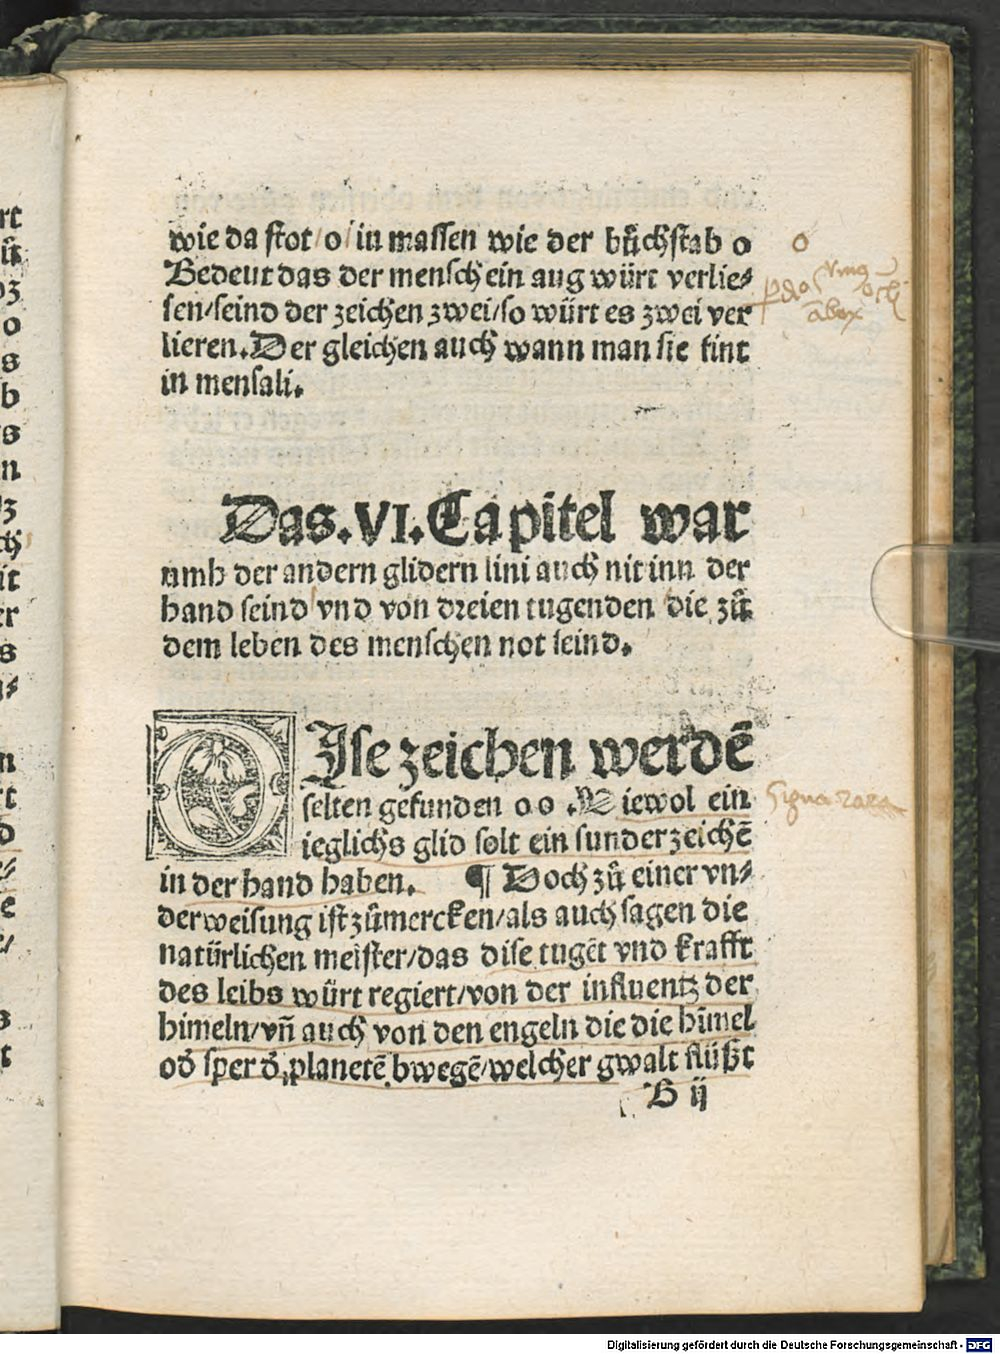 wie da stot/o/in massen wie der bůchstab o
Bedeut das der mensch ein aug würt verlie⸗
sen/seind der zeichen zwei/so würt es zwei ver
lieren. Der gleichen auch wann man sie fint
in mensali.
o
Das. VI. Capitel war
umb der andern glidern lini auch nit inn der
hand seind vnd von dreien tugenden die zů
dem leben des menschen not seind.
DIse zeichen werdē
selten gefunden o o. Wiewol ein
ieglichs glid solt ein sunder zeichē
in der hand haben. ¶ Doch zů einer vn⸗
derweisung ist zůmercken/als auch sagen die
natürlichen meister/das dise tugēt vnd krafft
des leibs würt regiert/von der influentz der
himeln/vñ auch von den engeln die die hīmel
od̄ sper d̄ planetē bwegē/welcher gwalt flüßt
signa rara
B ij
Digitalisierung gefördert durch die Deutsche Forschungsgemeinschaft - DFG